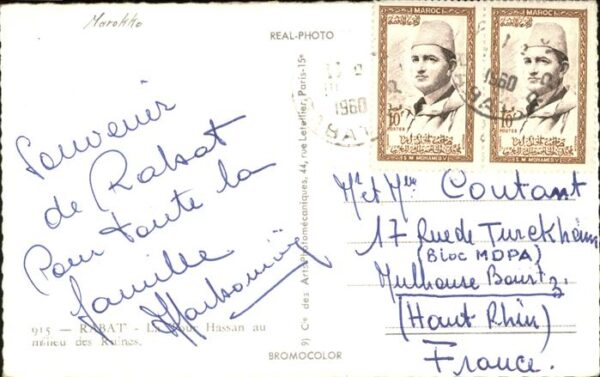 Marokko
REAL-PHOTO
Souvenir
de Rabat
Pour toute la
famille
915 — RABAT - La Tour Hassan au
milieu des Ruines.
9) Cie des Arts Photomécaniques, 44, rue Letellier, Paris-15e
BROMOCOLOR
MAROC
10F
POSTES
S.M. MOHAMED V
MAROC
10F
POSTES
S.M. MOHAMED V
1960
RABAT
1960
RABAT
Mr et Mme Coutant
17 Rue de Turckheim
(Bloc MDPA)
Mulhouse Bourtz
(Haut Rhin)
France.